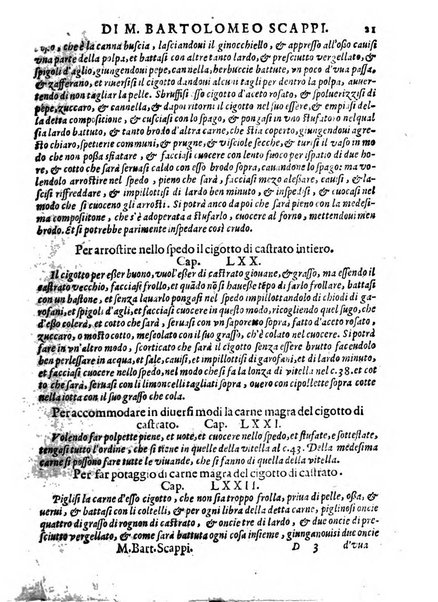 DI M. BARTOLOMEO SCAPPI. 21
cioè la canna buscia, lasciandoui il ginocchiello, & appresso all'osso cauisi
una parte della polpa, et battasi con altro tanto lardo, & presciutto vergellato, &
spigoli d'aglio, giungendoui pepe, cannella, herbuccie battute, un poco d'uua passa,
& zafferano, et riempasi il cigotto di essa compositione, & cuscisi d'intorno auuertendo
di non tagliar la pelle. Sbruffisi esso cigotto d'aceto rosato, & spoluerizzisi di
pepe, zuccaro, & cannella, & dapoi ritorni il cigotto nel suo essere, & empisi del-
la detta compositione, & cuscisi con lo spago, & pongasi in uno stufatoro con un poco di
lardo battuto, & tanto brodo d'altra carne, che stia coperto, giungendoui agre-
sto chiaro, spetierie communi, & prugne, & visciole secche, & turisi il vaso in mo
do che non possa sfiatare, & facciasi cuocere con lento fuoco per ispatio di due ho-
re, & cotto che sarà seruasi caldo con esso brodo sopra, cauandone lo spago: ma vo-
lendolo arrostire nel spedo, pieno che sarà, facciasi mezo alessare, caui si, & lasci
si riffreddare, & impillottisi di lardo ben minuto, & inspedisi, & facciasi cuocere nel
modo che si cuoceno gli arrosti. Si potrà anco da poi che sarà pieno con la medesi-
ma compositione, che s'è adoperata a stufarlo, cuocere al forno, mettendoui men
brodo. Et si potrà
Per arrostire nello spedo il cigotto di castrato intiero.
Cap. LXX.
Il cigotto per esser buono, vuol'esser di castrato giouane, & grasso, ma essendo il
castrato vecchio, facciasi frollo, et quãdo nõ si hauesse tẽpo di farlo frollare, battasi
con un bastone, et senza lauarlo pongasi nel spedo impillottandolo di chiodi di ga-
rofani, et spigoli d'agli, et facciasi cuocere in questo modo, ricogliendo quel sugo, che
d'esso colerà, et cotto che sarà, seruasi con un saporetto sopra, fatto d'aceto rosato,
zuccaro, o mosto cotto, mescolato con il suo grasso, ch'è colato nel cuocere. Si potrà
fare in vn'altro modo, scortichisi il cigotto senza esser brutto facciasi un poco
ben perlessare in acqua, et sale, cauisi, et impillottisi di garofani, et di lardo minuto,
et facciasi cuocere nel spedo, nel modo che si fa la lonza di vitella nel c.38. et cot
to che sarà, seruasi con limoncelli tagliati sopra, ouero con cipollette soppresse cotte
nella iotta con il suo grasso che cola.
Per accommodare in diuersi modi la carne magra del cigotto di
castrato. Cap. LXXI.
Volendo far polpette piene, et uote, et cuocere nello spedo, et stufate, e sottestate,
tengasi tutto l'ordine, che si tiene in quelle della vitella al c.43. Della medesima
carne si possono fare tutte le viuande, che si fanno di quella della vitella.
Per far potaggio di carne magra del cigotto di castrato.
Cap. LXXII.
Piglisi la carne d'esso cigotto, che non sia troppo frolla, priua di pelle, ossa, &
nerui, & battasi con li coltelli, & per ogni libra della detta carne, piglinosi oncie
quattro di grasso di rognon di castrato, & oncie tre di lardo, & due oncie di pre-
sciutto vergellato, & come sarà battuta ogni cosa insieme, giunganouisi due oncie
M. Bart. Scappi. D 3 d'vua